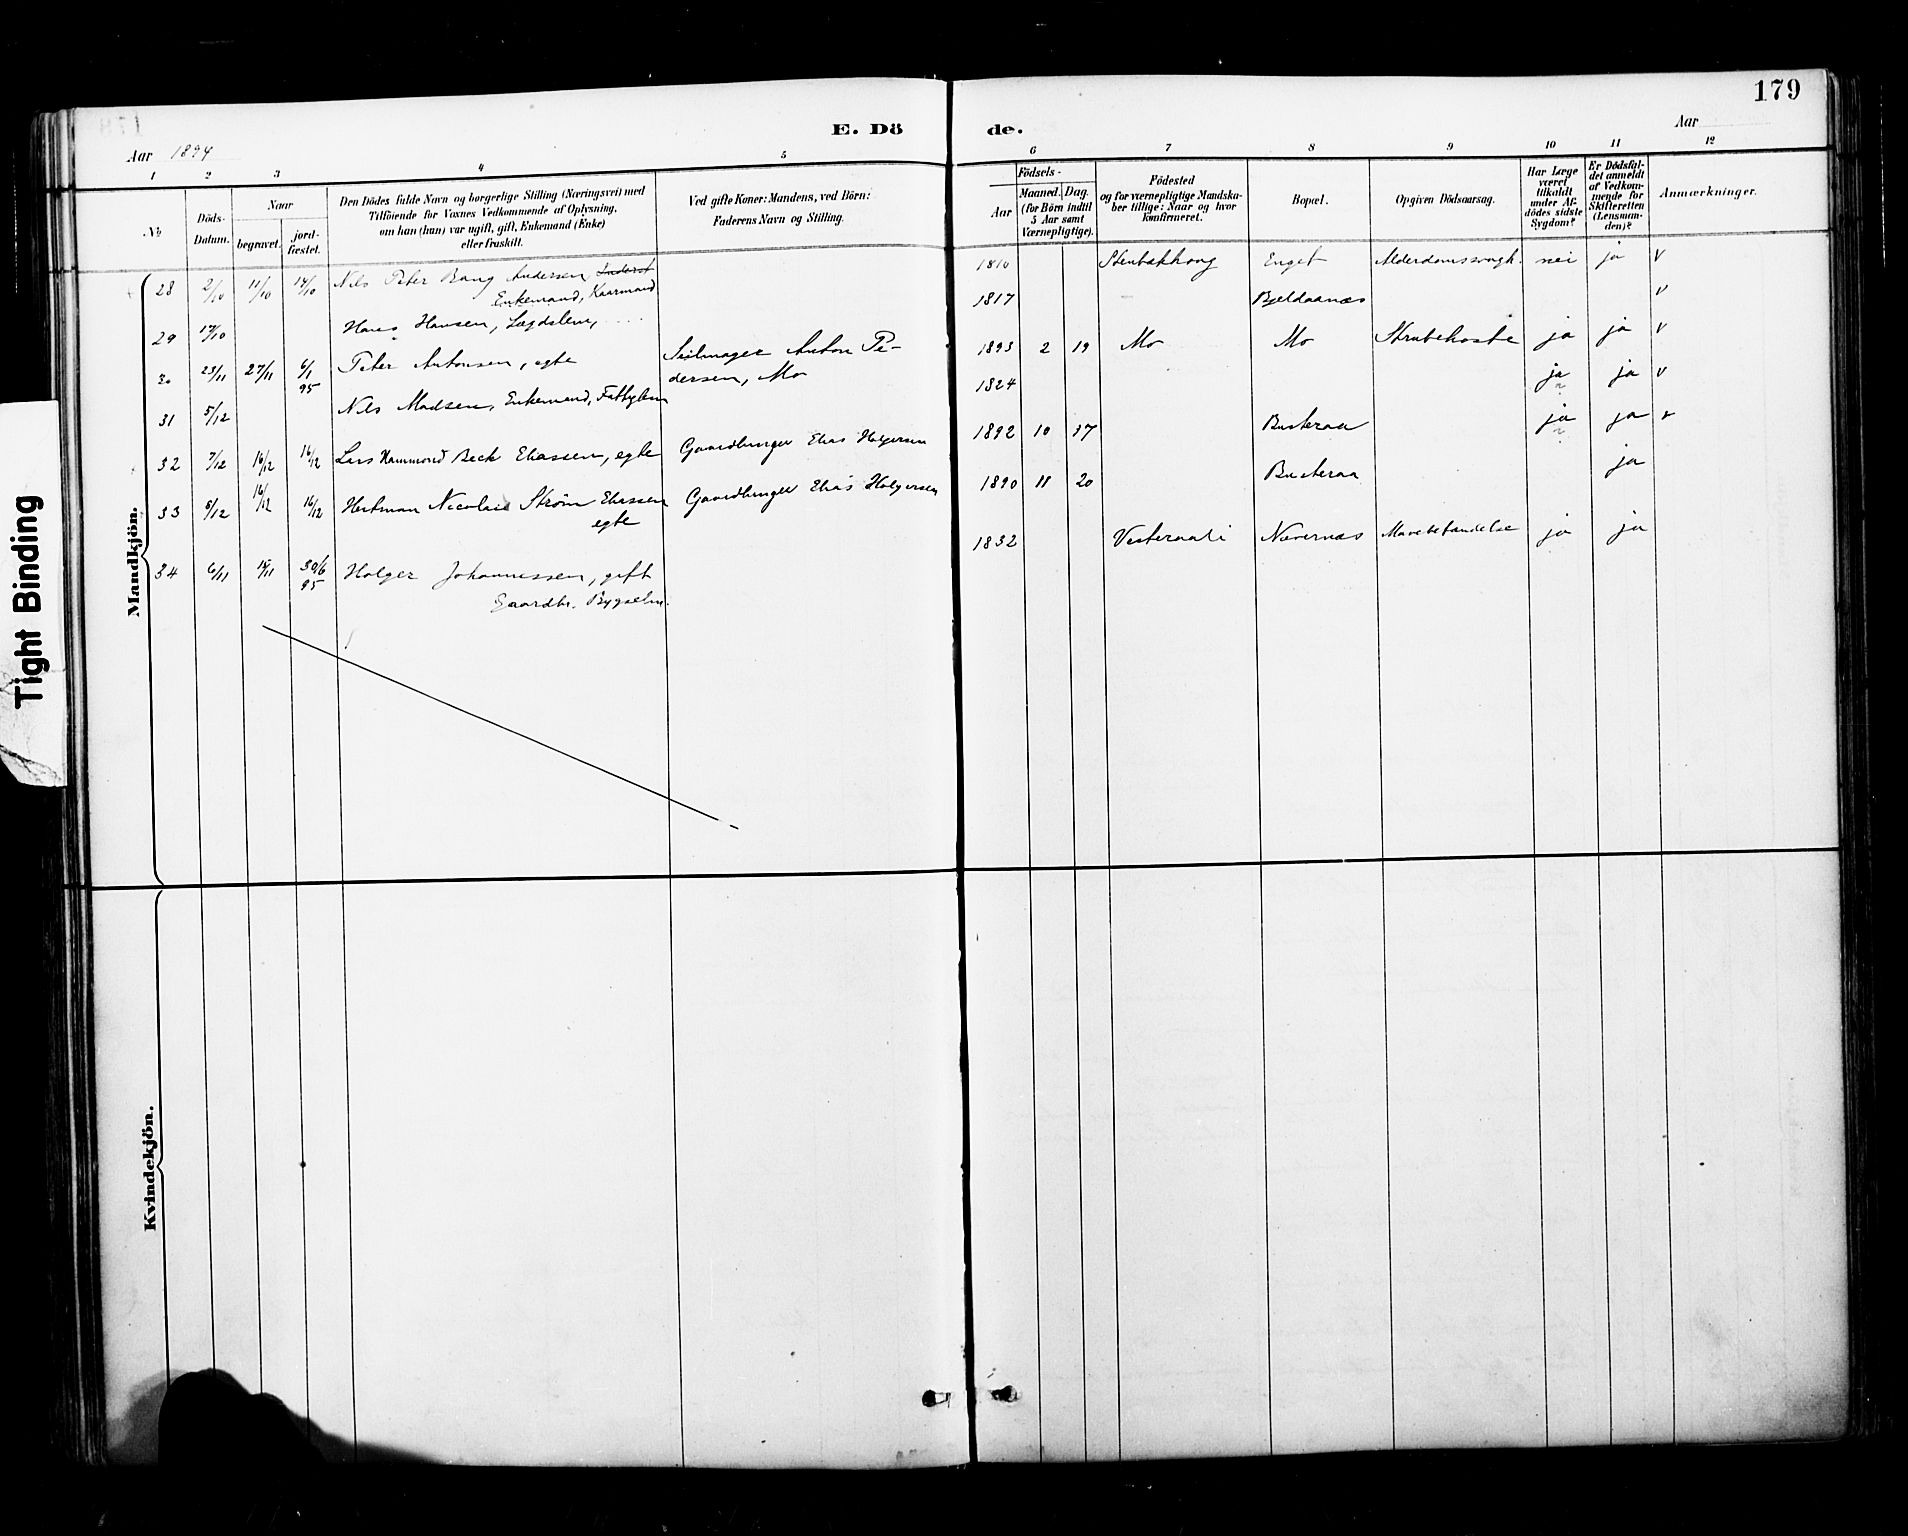 179
E. Döde.
Aar 1894
Aar
1 2 3 4 5 6 7 8 9 10 11 12
No
Döds-Datum.
Naar
begravet.
jord-fæstet.
Den Dödes fulde Navn og borgerlige Stilling (Næringsvei) med
Tilföiende for Voxnes Vedkommende af Oplysning,
om han (hun) var ugift, gift, Enkemand (Enke)
eller fraskilt.
Ved gifte Koner: Mandens, ved Börn:
Faderens Navn og Stilling.
Födsels-
Aar
Maaned. Dag.
(for Börn indtil
5 Aar samt
Værnepligtige).
Födested
og for værnepligtige Mandska-
ber tillige: Naar og hvor
konfirmeret.
Bopæl.
Opgiven Dödsaarsag.
Har Læge
været
tilkaldt
under Af-
dödes sidste
Sygdom?
Er Dödsfal-
det anmeldt
af Vedkom-
mende for
Skifteretten
(Lensman-
den)?
Anmærkninger.
Mandkjön.
28 2/10 11/10 14/10 Nils Peter Bang Andersen, Inderst 1810 Enget Alderdomssvagh. nei ja v
Enkemand, Kaarmand
29 17/10 Hans Hansen, Lægdslem, 1817 Bjeldaanæs v
30 23/11 27/11 6/1 95 Peter Antonsen, egte Seilmager Anton Pe-
dersen, Mo 1893 2 19 Mo Mo Strubehoste ja ja v
31 5/12 Nils Madsen, Enkemand, Fattiglem 1824 ja ja v
32 7/12 16/12 16/12 Lars Hammond Beck Eliassen, egte Gaardbruger Elias Holgersen 1892 10 17 Busteraa ja ja v
33 8/12 16/12 16/12 Hertman Nicolai Strøm Eliassen Gaardbruger Elias Holgersen 1890 11 20 Busteraa ja
egte
34 6/11 18/11 30/6 95 Holger Johannessen, gift 1832 Vesteraali Nævernæs Mavebetændelse ja ja
Gaardbr. Bygselm.
Kvindekjön.
Tight Binding